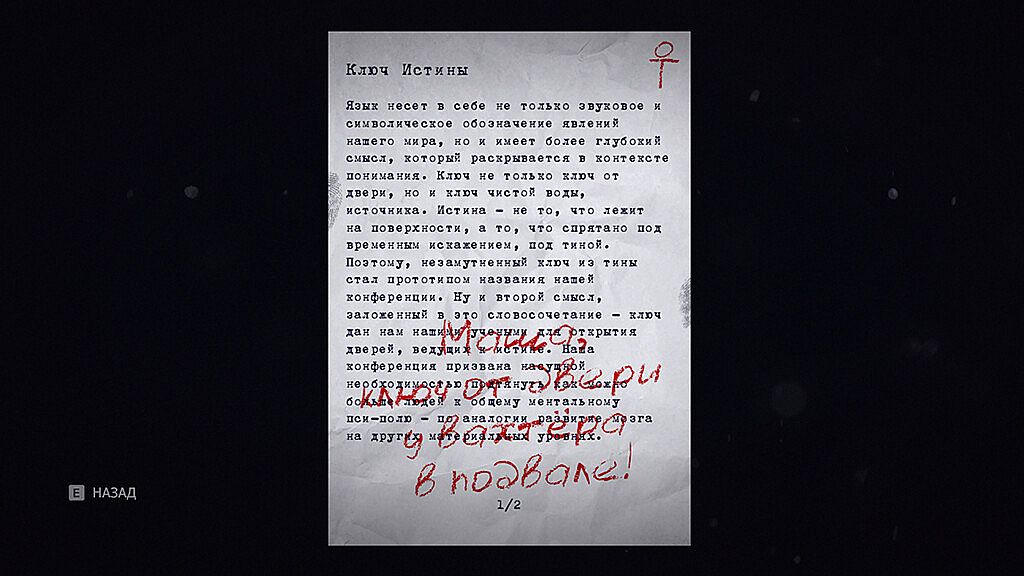 Ключ Истины
Язык несет в себе не только звуковое и
символическое обозначение явлений
нашего мира, но и имеет более глубокий
смысл, который раскрывается в контексте
понимания. Ключ не только ключ от
двери, но и ключ чистой воды,
источника. Истина – не то, что лежит
на поверхности, а то, что спрятано под
временным искажением, под тиной.
Поэтому, незамутненный ключ из тины
стал прототипом названия нашей
конференции. Ну и второй смысл,
заложенный в это словосочетание – ключ
дан нам нашими учеными для открытия
дверей, ведущих к истине. Наша
конференция призвана насущной
необходимостью подтянуть как можно
больше людей к общему ментальному
пси-полю – по аналогии развитие мозга
на других материальных уровнях.
Маша,
ключ от двери
у вахтёра
в подвале!
1/2
E НАЗАД